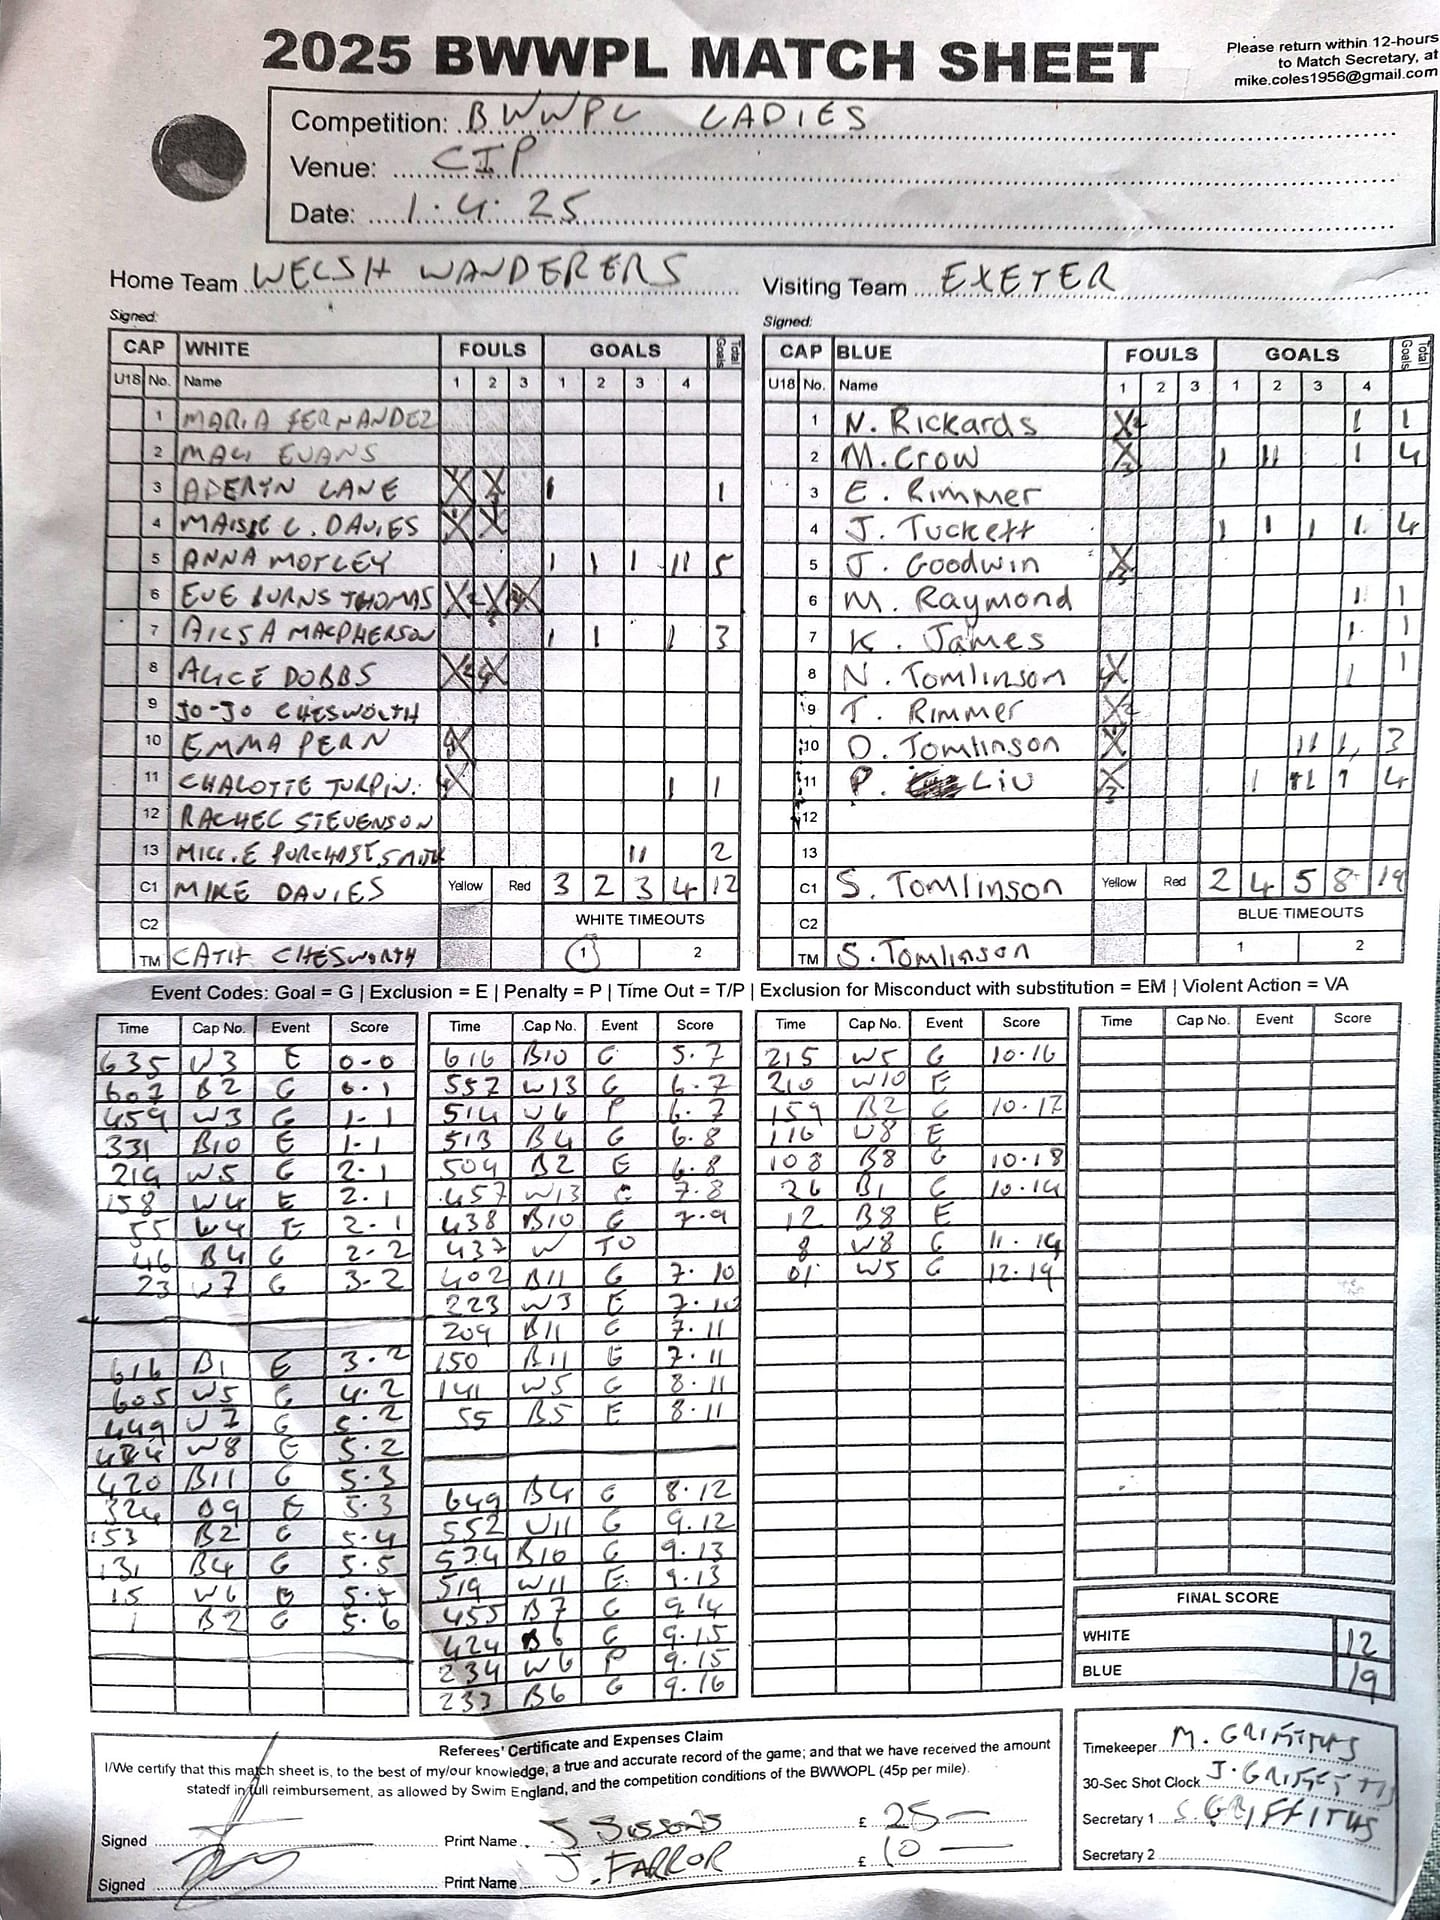 2025 BWWPL MATCH SHEET
Please return within 12-hours
to Match Secretary, at
mike.coles1956@gmail.com
Competition: BWWPL LADIES
Venue: CIP
Date: 1.4.25
Home Team WELSH WANDERERS
Visiting Team EXETER
Signed:
Signed:
CAP WHITE FOULS GOALS Total Goals
U18 No. Name 1 2 3 1 2 3 4
1 MARIA FERNANDEZ
2 MALI EVANS
3 ADERYN LANE X X 1 1
4 MAISIE L. DAVIES X X
5 ANNA MOTLEY 1 1 1 11 5
6 EVE BURNS THOMAS X X X
7 AILSA MACPHERSON 1 1 1 3
8 ALICE DOBBS X X
9 JO-JO CHESWORTH
10 EMMA PERN X
11 CHALOTTE TURPIN. X 1 1
12 RACHEL STEVENSON
13 MILLIE PURCHASE SMITH 11 2
C1 MIKE DAVIES Yellow Red 3 2 3 4 12
C2 WHITE TIMEOUTS
TM CATH CHESWORTH 1 2
CAP BLUE FOULS GOALS Total Goals
U18 No. Name 1 2 3 1 2 3 4
1 N. Rickards X 1 1
2 M. Crow X 1 11 1 4
3 E. Rimmer
4 J. Tuckett 1 1 1 1 4
5 J. Goodwin X
6 M. Raymond 1 1
7 K. James 1 1
8 N. Tomlinson X 1 1
9 T. Rimmer X
10 D. Tomlinson X 11 1 3
11 P. Liu X 1 11 1 4
12
13
C1 S. Tomlinson Yellow Red 2 4 5 8 19
C2 BLUE TIMEOUTS
TM S. Tomlinson 1 2
Event Codes: Goal = G | Exclusion = E | Penalty = P | Time Out = T/P | Exclusion for Misconduct with substitution = EM | Violent Action = VA
Time Cap No. Event Score
635 W3 E 0-0
607 B2 G 0.1
459 W3 G 1-1
331 B10 E 1-1
219 W5 G 2-1
158 W4 E 2.1
55 W4 E 2-1
46 B4 G 2-2
23 W7 G 3-2
616 B1 E 3.2
605 W5 G 4.2
449 W7 G 5.2
W8 E 5.2
420 B11 G 5.3
324 B9 E 5.3
153 B2 G 5.4
131 B4 G 5.5
15 W6 E 5.5
1 B2 G 5.6
Time Cap No. Event Score
616 B10 G 5.7
552 W13 G 6.7
514 W6 P 6.7
513 B4 G 6.8
504 B2 E 6.8
457 W13 G 7.8
438 B10 G 7.9
437 W TO
402 B11 G 7.10
223 W3 E 7.10
209 B11 G 7.11
150 B11 E 7.11
141 W5 G 8.11
55 B5 E 8.11
649 B4 G 8.12
552 W11 G 9.12
534 B10 G 9.13
519 W11 E 9.13
455 B7 G 9.14
424 B6 G 9.15
234 W6 P 9.15
233 B6 G 9.16
Time Cap No. Event Score
215 W5 G 10.16
210 W10 E
159 B2 G 10.17
116 W8 E
108 B8 G 10.18
26 B1 G 10.19
12 B8 E
8 W8 G 11.19
01 W5 G 12.19
Time Cap No. Event Score
FINAL SCORE
WHITE 12
BLUE 19
Referees' Certificate and Expenses Claim
I/We certify that this match sheet is, to the best of my/our knowledge, a true and accurate record of the game; and that we have received the amount
statedf in full reimbursement, as allowed by Swim England, and the competition conditions of the BWWOPL (45p per mile).
Signed Print Name J Sissons £ 25 —
Signed Print Name J. FARROR £ 10 —
Timekeeper M. GRIFFITHS
30-Sec Shot Clock J. GRIFFITHS
Secretary 1 S. GRIFFITHS
Secretary 2